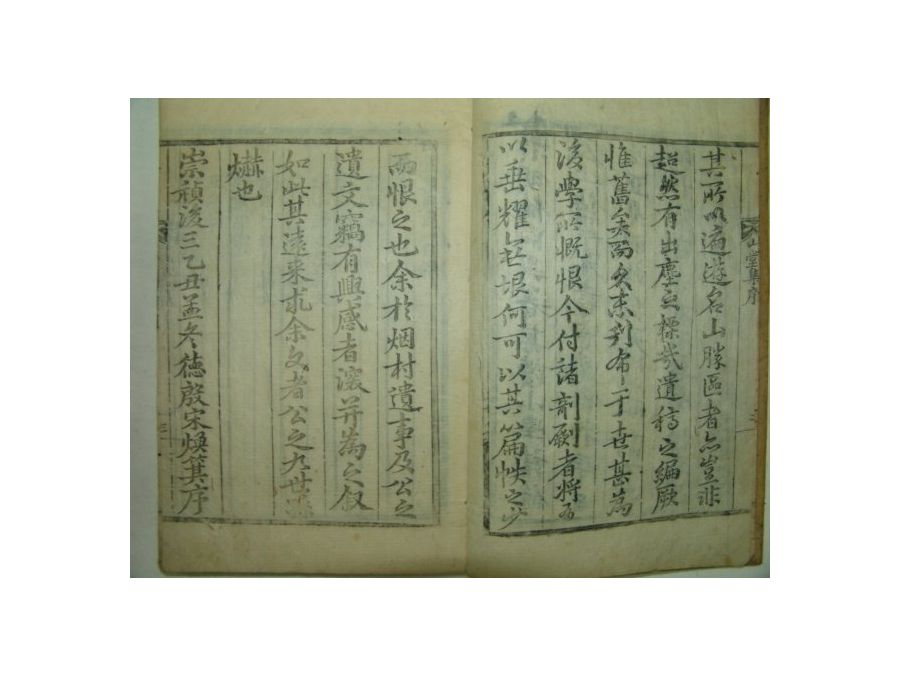 其所以遍遊名山勝區者亦豈非
超然有出塵之標哉遺稿之編厥
惟舊矣而尚未刊布于世甚爲
後學所慨恨今付諸剞劂者將
以垂耀無垠何可以其篇帙之少
而恨之也余於烟村遺事及公之
遺文竊有興感者滾并爲之叙
如此其遠來求余文者公之九世孫
爀也
崇禎後三乙丑孟冬德殷宋煥箕序
山堂集序